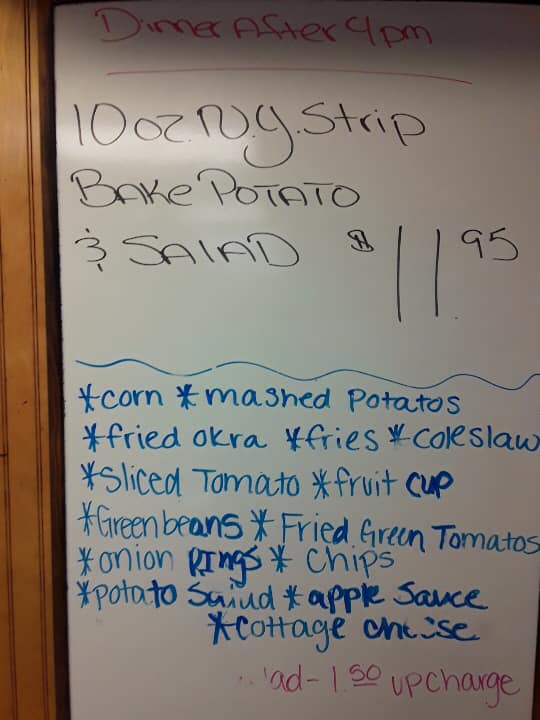 Dinner After 4pm
10 oz. N.Y. Strip
BAKE POTATO
& SALAD $11.95
*corn *mashed Potatos
*fried okra *fries *coleslaw
*Sliced Tomato *fruit cup
*Greenbeans * Fried Green Tomatos
*onion RINgs * Chips
*potato Salad *apple Sauce
*cottage cheese
1.50 upcharge